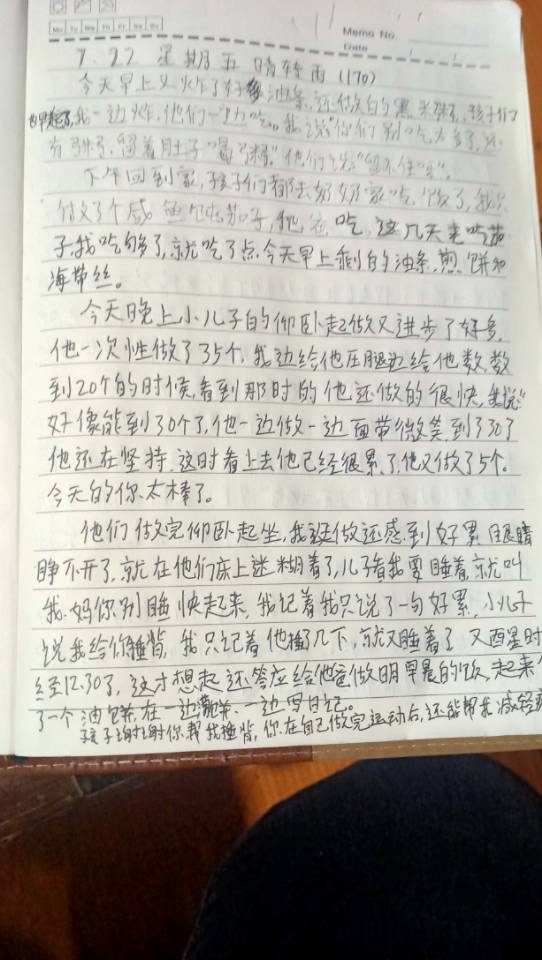 Mo Tu We Th Fr Sa Su
Memo No.
Date
7.27 星期五 晴转雨 (170)
今天早上又炸了好多油条,还做的黑米粥,孩子们
都起了,我一边炸,他们一边吃。我说"你们别吃太多了,还
有粥,留着肚子喝粥"他们说"留不住"。
下午回到家,孩子们都去奶奶家吃饭了,我只
做了个咸鱼炖茄子,他爸吃,这几天老吃茄
子,我吃够了,就吃了点今天早上剩的油条,煎饼和
海带丝。
今天晚上小儿子的仰卧起做又进步了好多,
他一次性做了35个,我边给他压腿边给他数,数
到20个的时候,看到那时的他还做的很快,我说"
好像能到30个了,他一边做一边面带微笑,到了30了
他还在坚持,这时看上去他已经很累了,他又做了5个。
今天的你太棒了。
他们做完仰卧起坐,我没做还感到好累,眼睛
睁不开了,就在他们床上迷糊着了,儿子看我要睡着,就叫
我,妈你别睡快起来,我记着我只说了一句好累,小儿子
说我给你捶背,我只记着他捶了几下,就又睡着了,又醒来时
经12.30了,这才想起还答应给他爸做明早晨的饭,起来
了一个油饼,在一边 一边写日记。
孩子谢谢你帮我捶背,你在自己做完运动后,还能帮我减轻